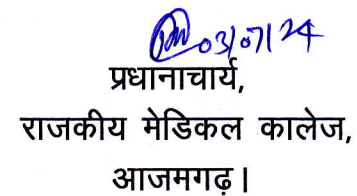 03/07/24
प्रधानाचार्य,
राजकीय मेडिकल कालेज,
आजमगढ़।